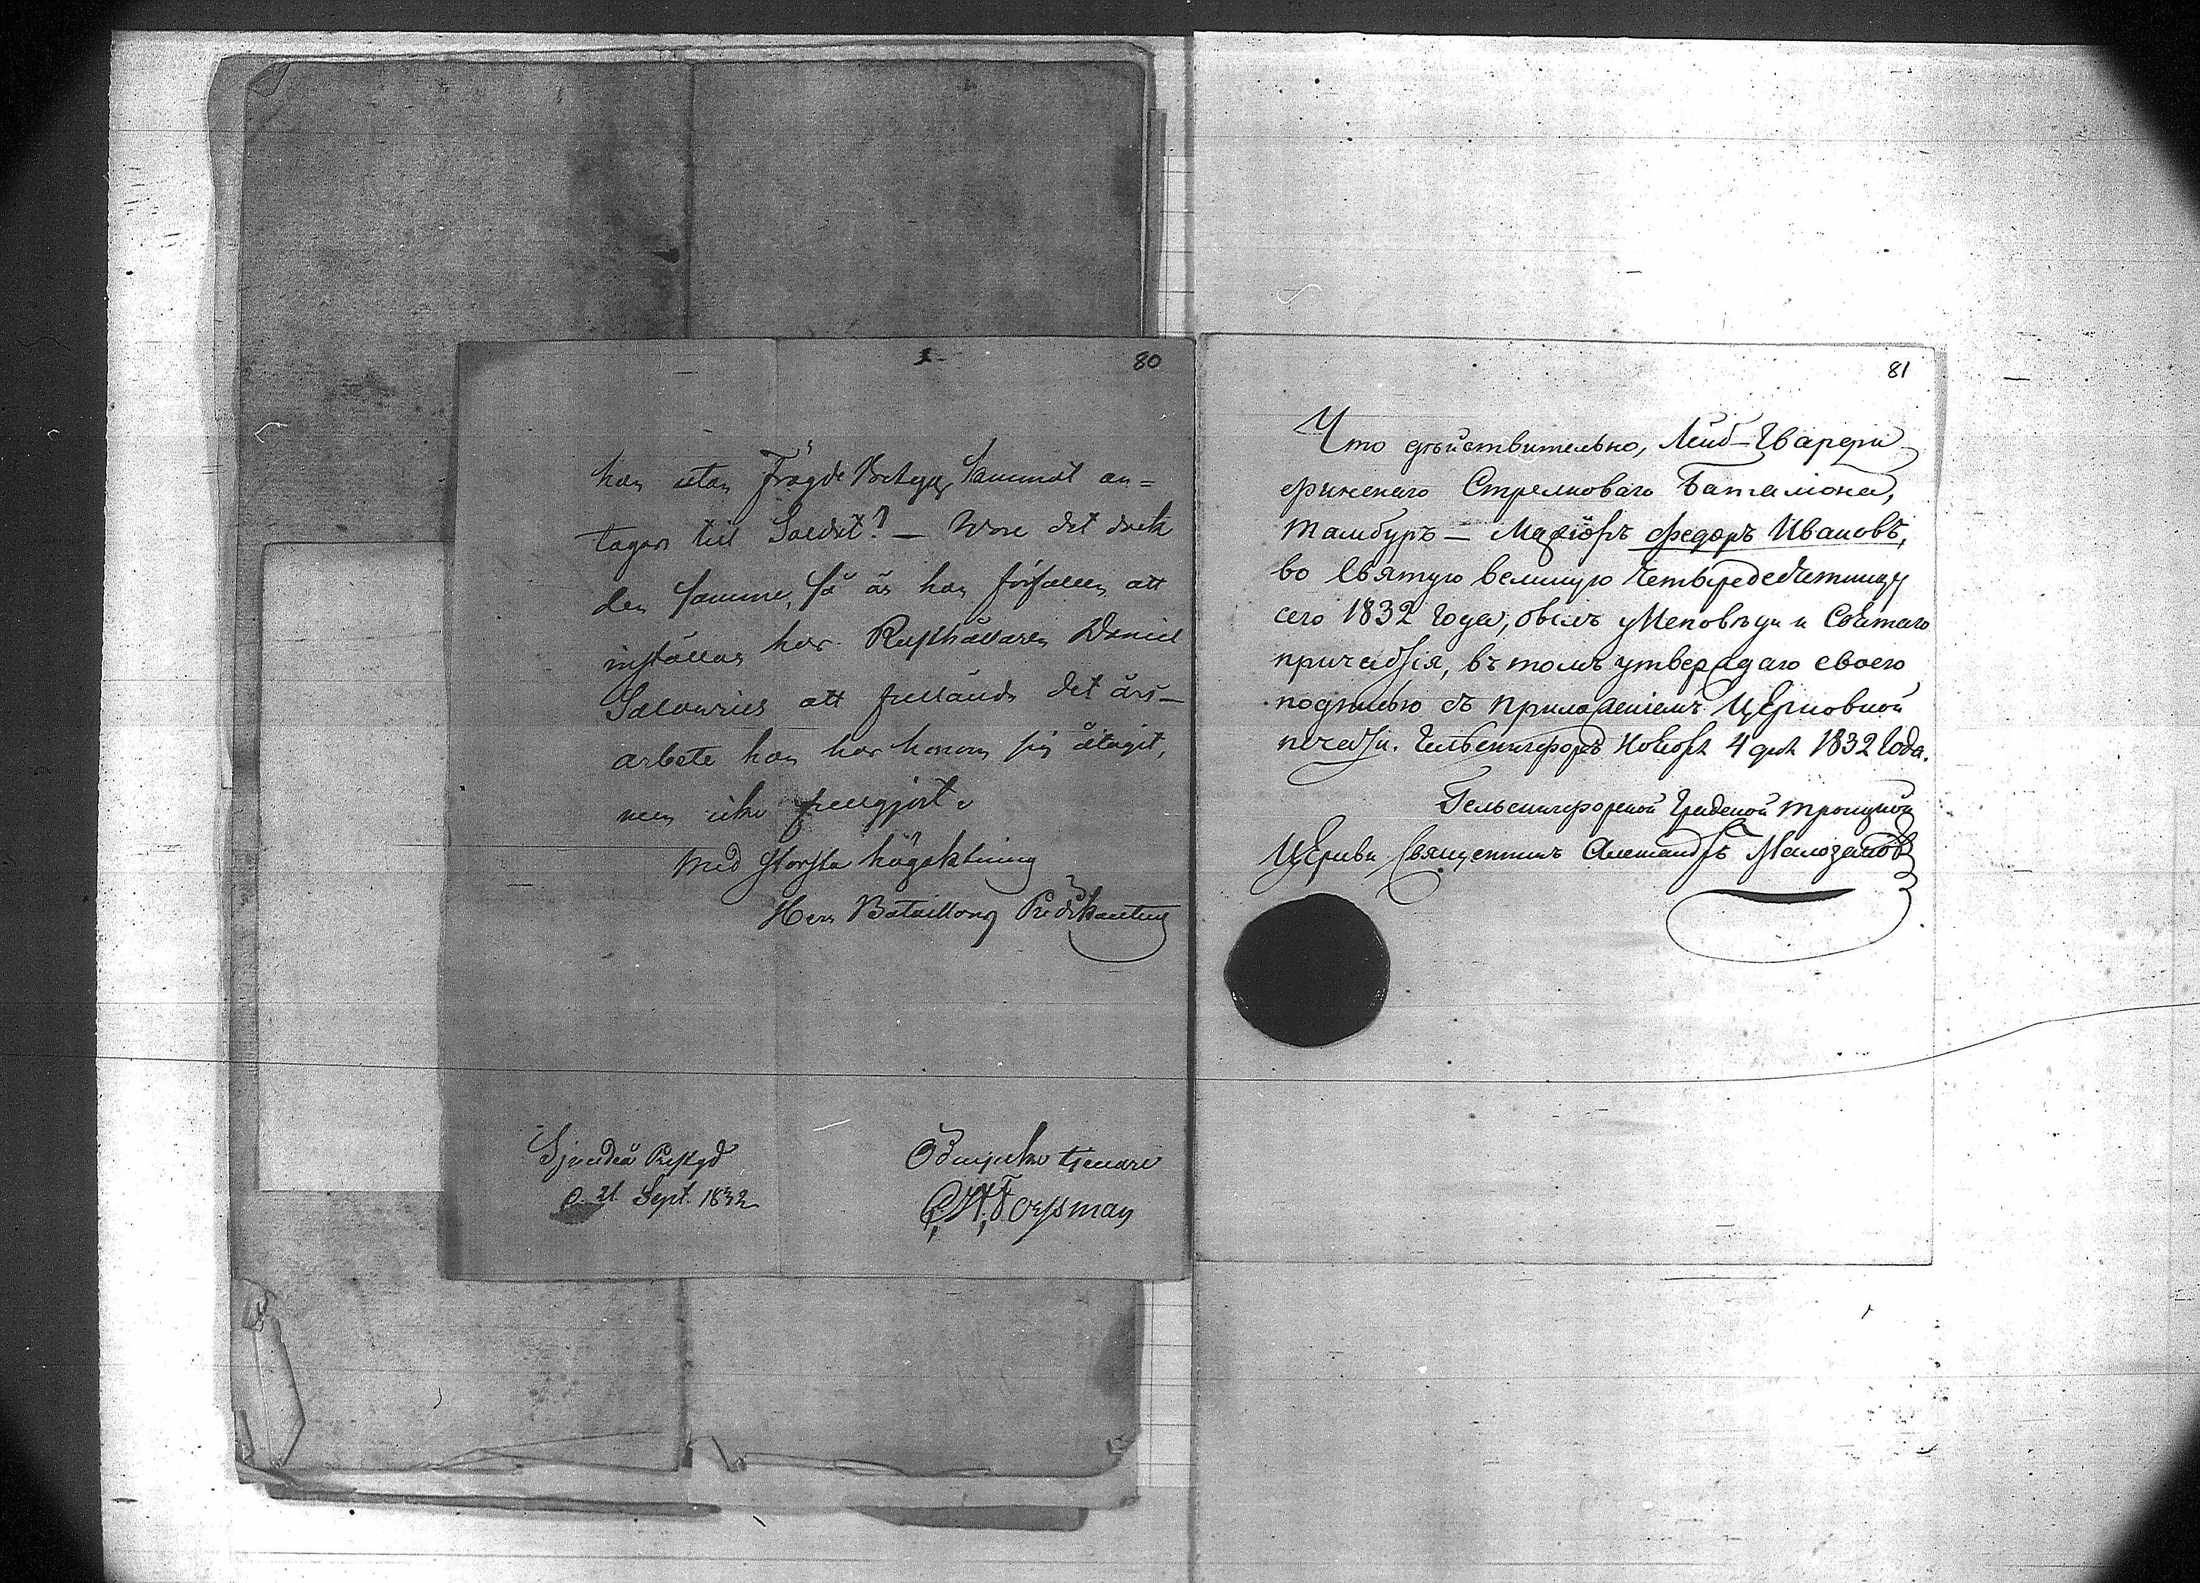 80
han utan Frägde Betyg kunnat an=
tagas till Soldat? — Vore det dock
den samme, så är han förfallen att
inställas hos Rusthållaren Daniel
att fullända det års-
arbete han hos honom sig åtagit,
men icke fullgjort.
Med största högaktning
Herr Bataillons Predikantens
Sjundeå Prestgd
d. 21 Sept. 1832
Ödmjuke tjenare
C. H. Forssman
81
Что дѣйствительно, Лейб-Гвардіи
Финскаго Стрелковаго Баталіона,
Тамбуръ — Мажіоръ Федоръ Ивановъ,
во Святую великую Четыредесятницу
сего 1832 Года, былъ у Исповѣди и Святаго
причастія, въ томъ утверждаю своею
подписью съ приложеніемъ Церковной
печати. Гельсингфорсъ Ноября 4 дня 1832 Года.
Гельсингфорской Градской Троицкой
Церкви Священникъ Александръ Малозановъ